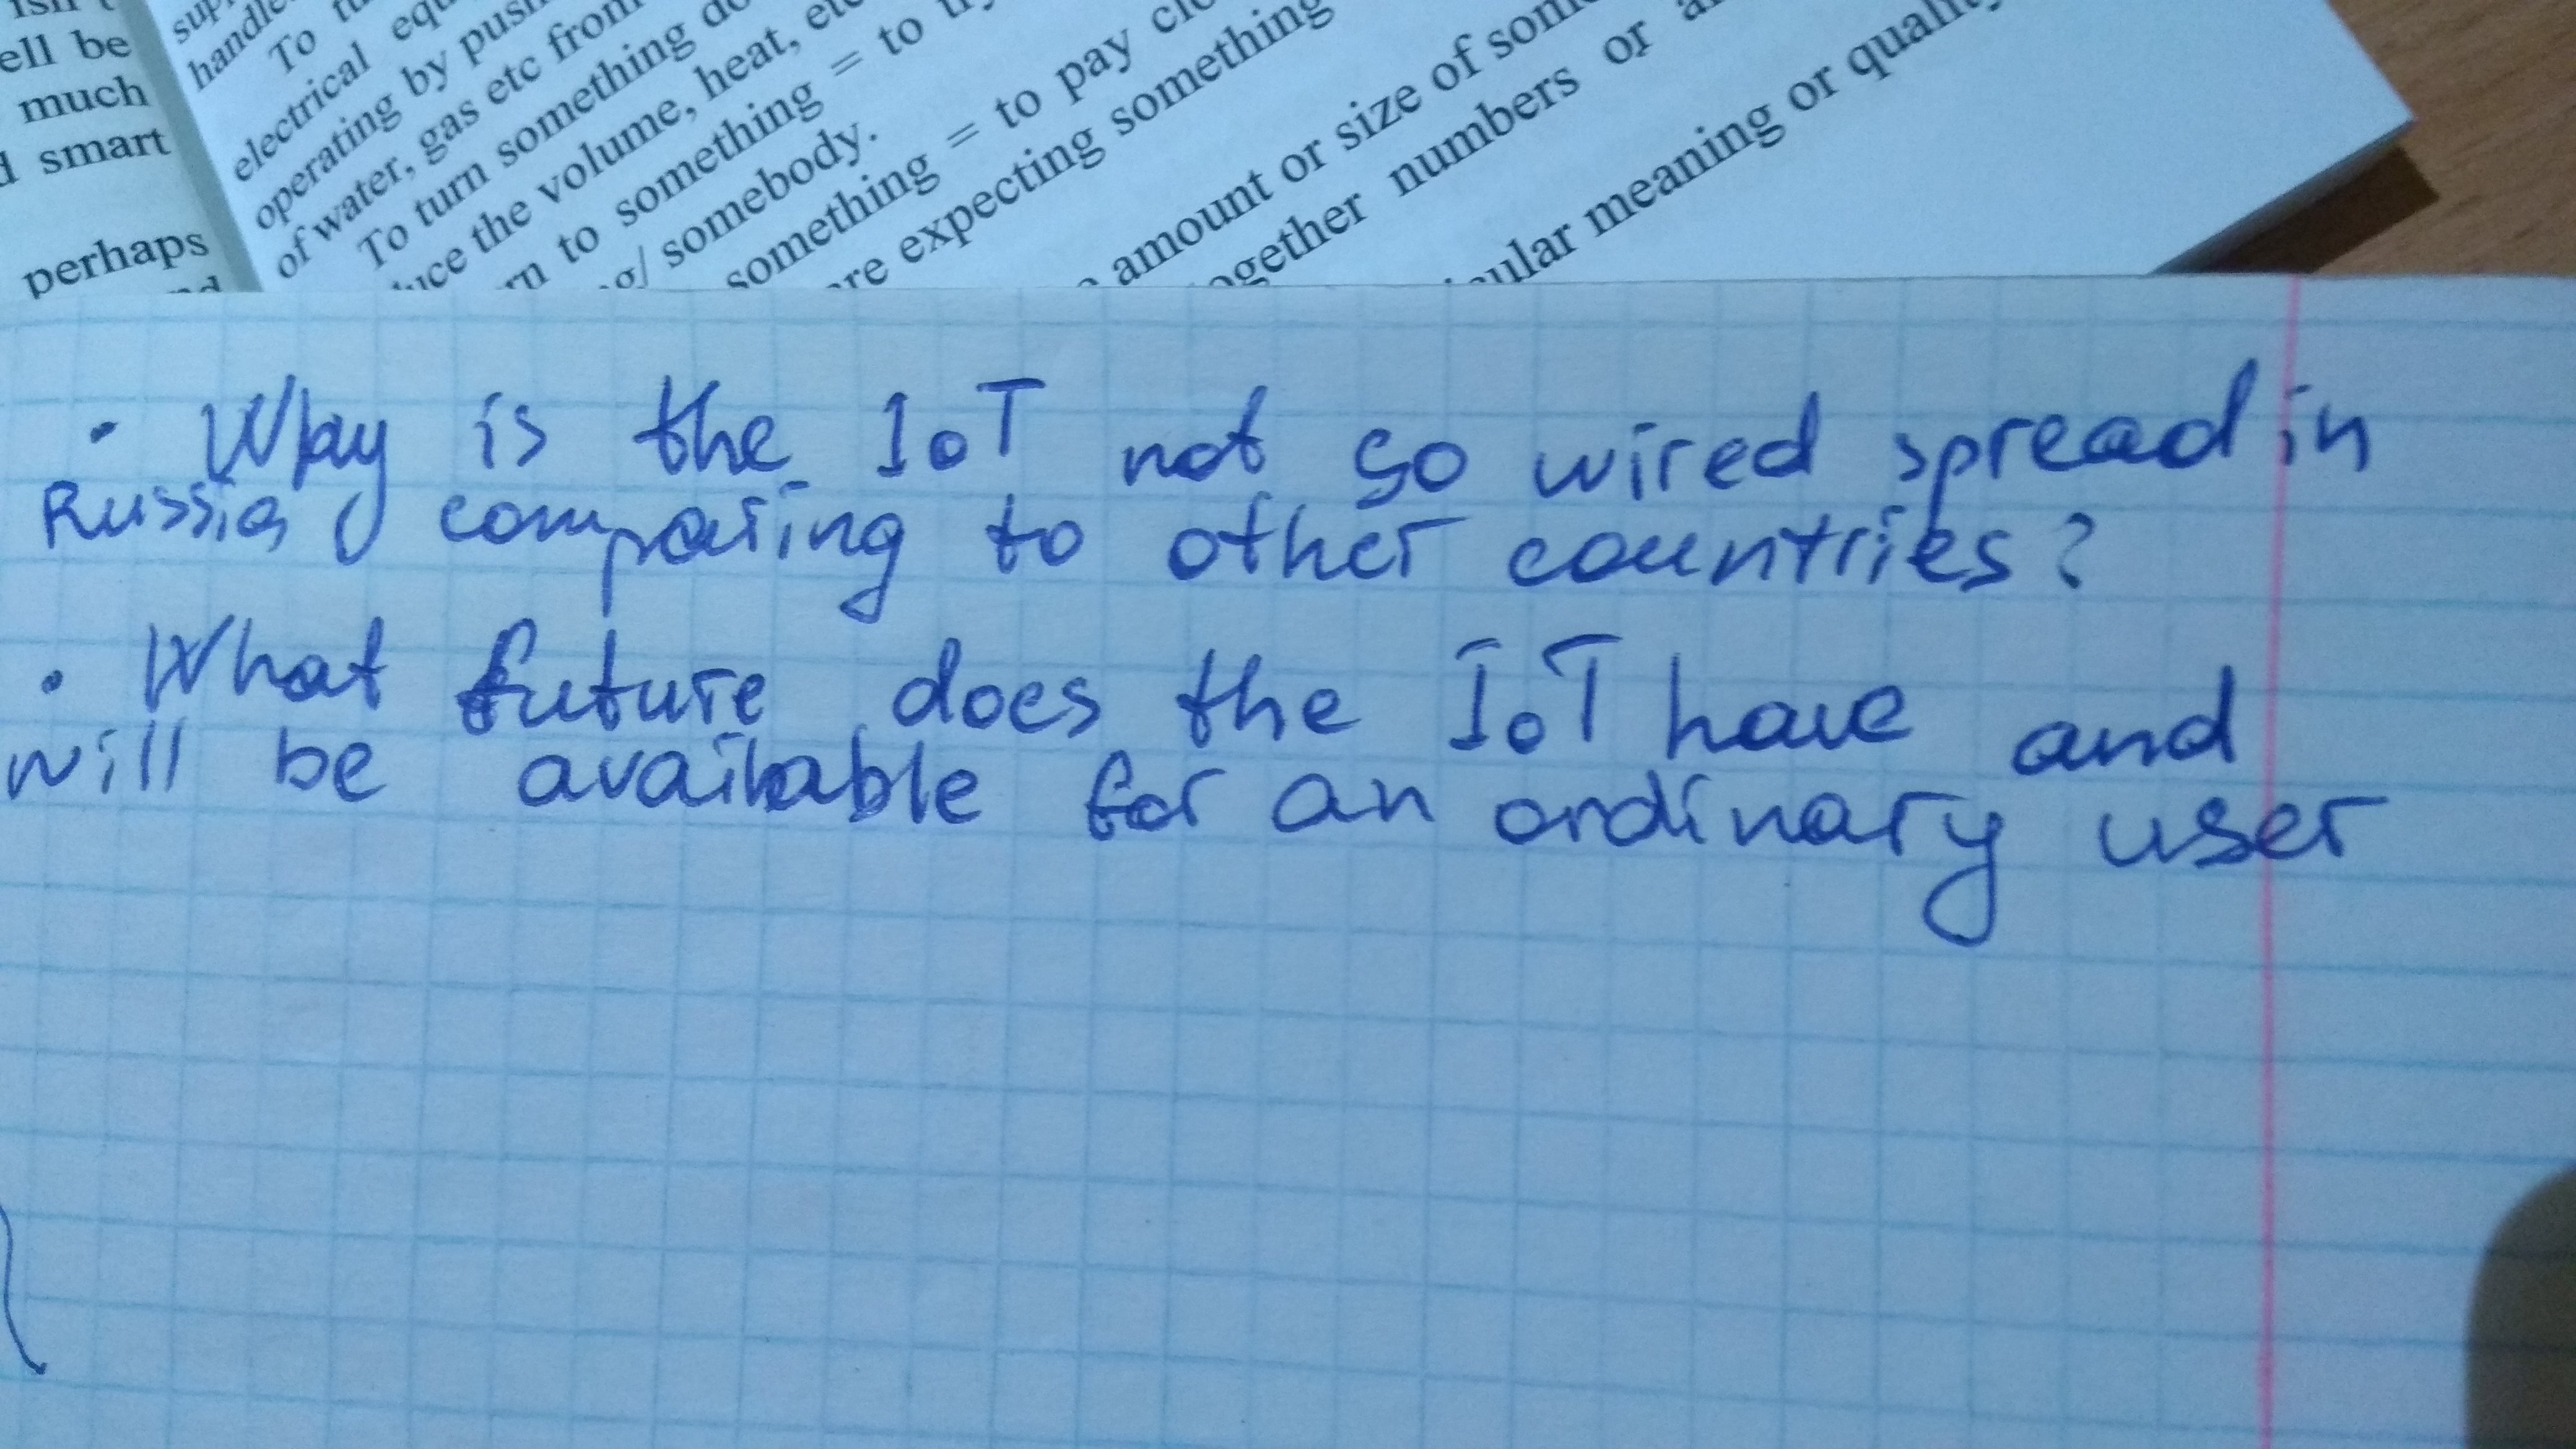 ell be
much
smart
perhaps
handle
To
electrical
operating by
of water, gas etc from
To turn something
the volume, heat,
to something = to
somebody.
something = to pay
expecting something
amount or size of
numbers or
meaning or
• Why is the IoT not so wired spread in
Russia, comparing to other countries?
• What future does the IoT have and
will be available for an ordinary user